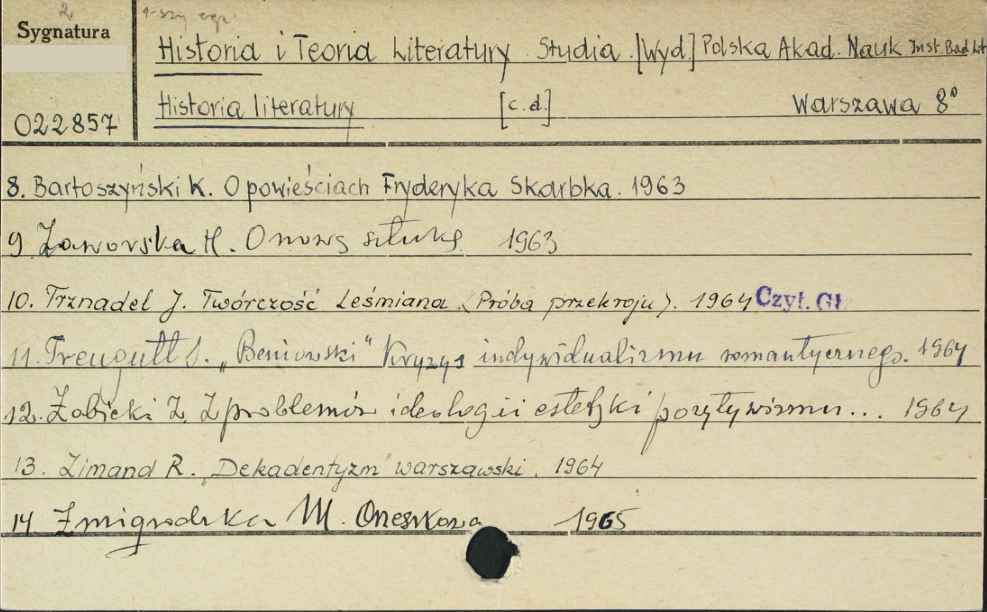 2 1-szy egz.
Sygnatura
Historia i Teoria Literatury. Studia. [Wyd.] Polska Akad. Nauk Inst. Bad. Lit
Historia literatury [c.d.] Warszawa 8°
022857
8. Bartoszyński K. O powieściach Fryderyka Skarbka. 1963
9 Zaworska H. O nową sztukę 1963
10. Trznadel J. Twórczość Leśmiana. (Próba przekroju). 1964 Czyt. Gł.
11. Treugutt S. „Beniowski" Kryzys indywidualizmu romantycznego. 1964
12. Żabicki Z. Z problemów ideologii i estetyki pozytywizmu... 1964
13. Zimand R. „Dekadentyzm" warszawski. 1964
14 Żmigrodzka M. Orzeszkowa 1965